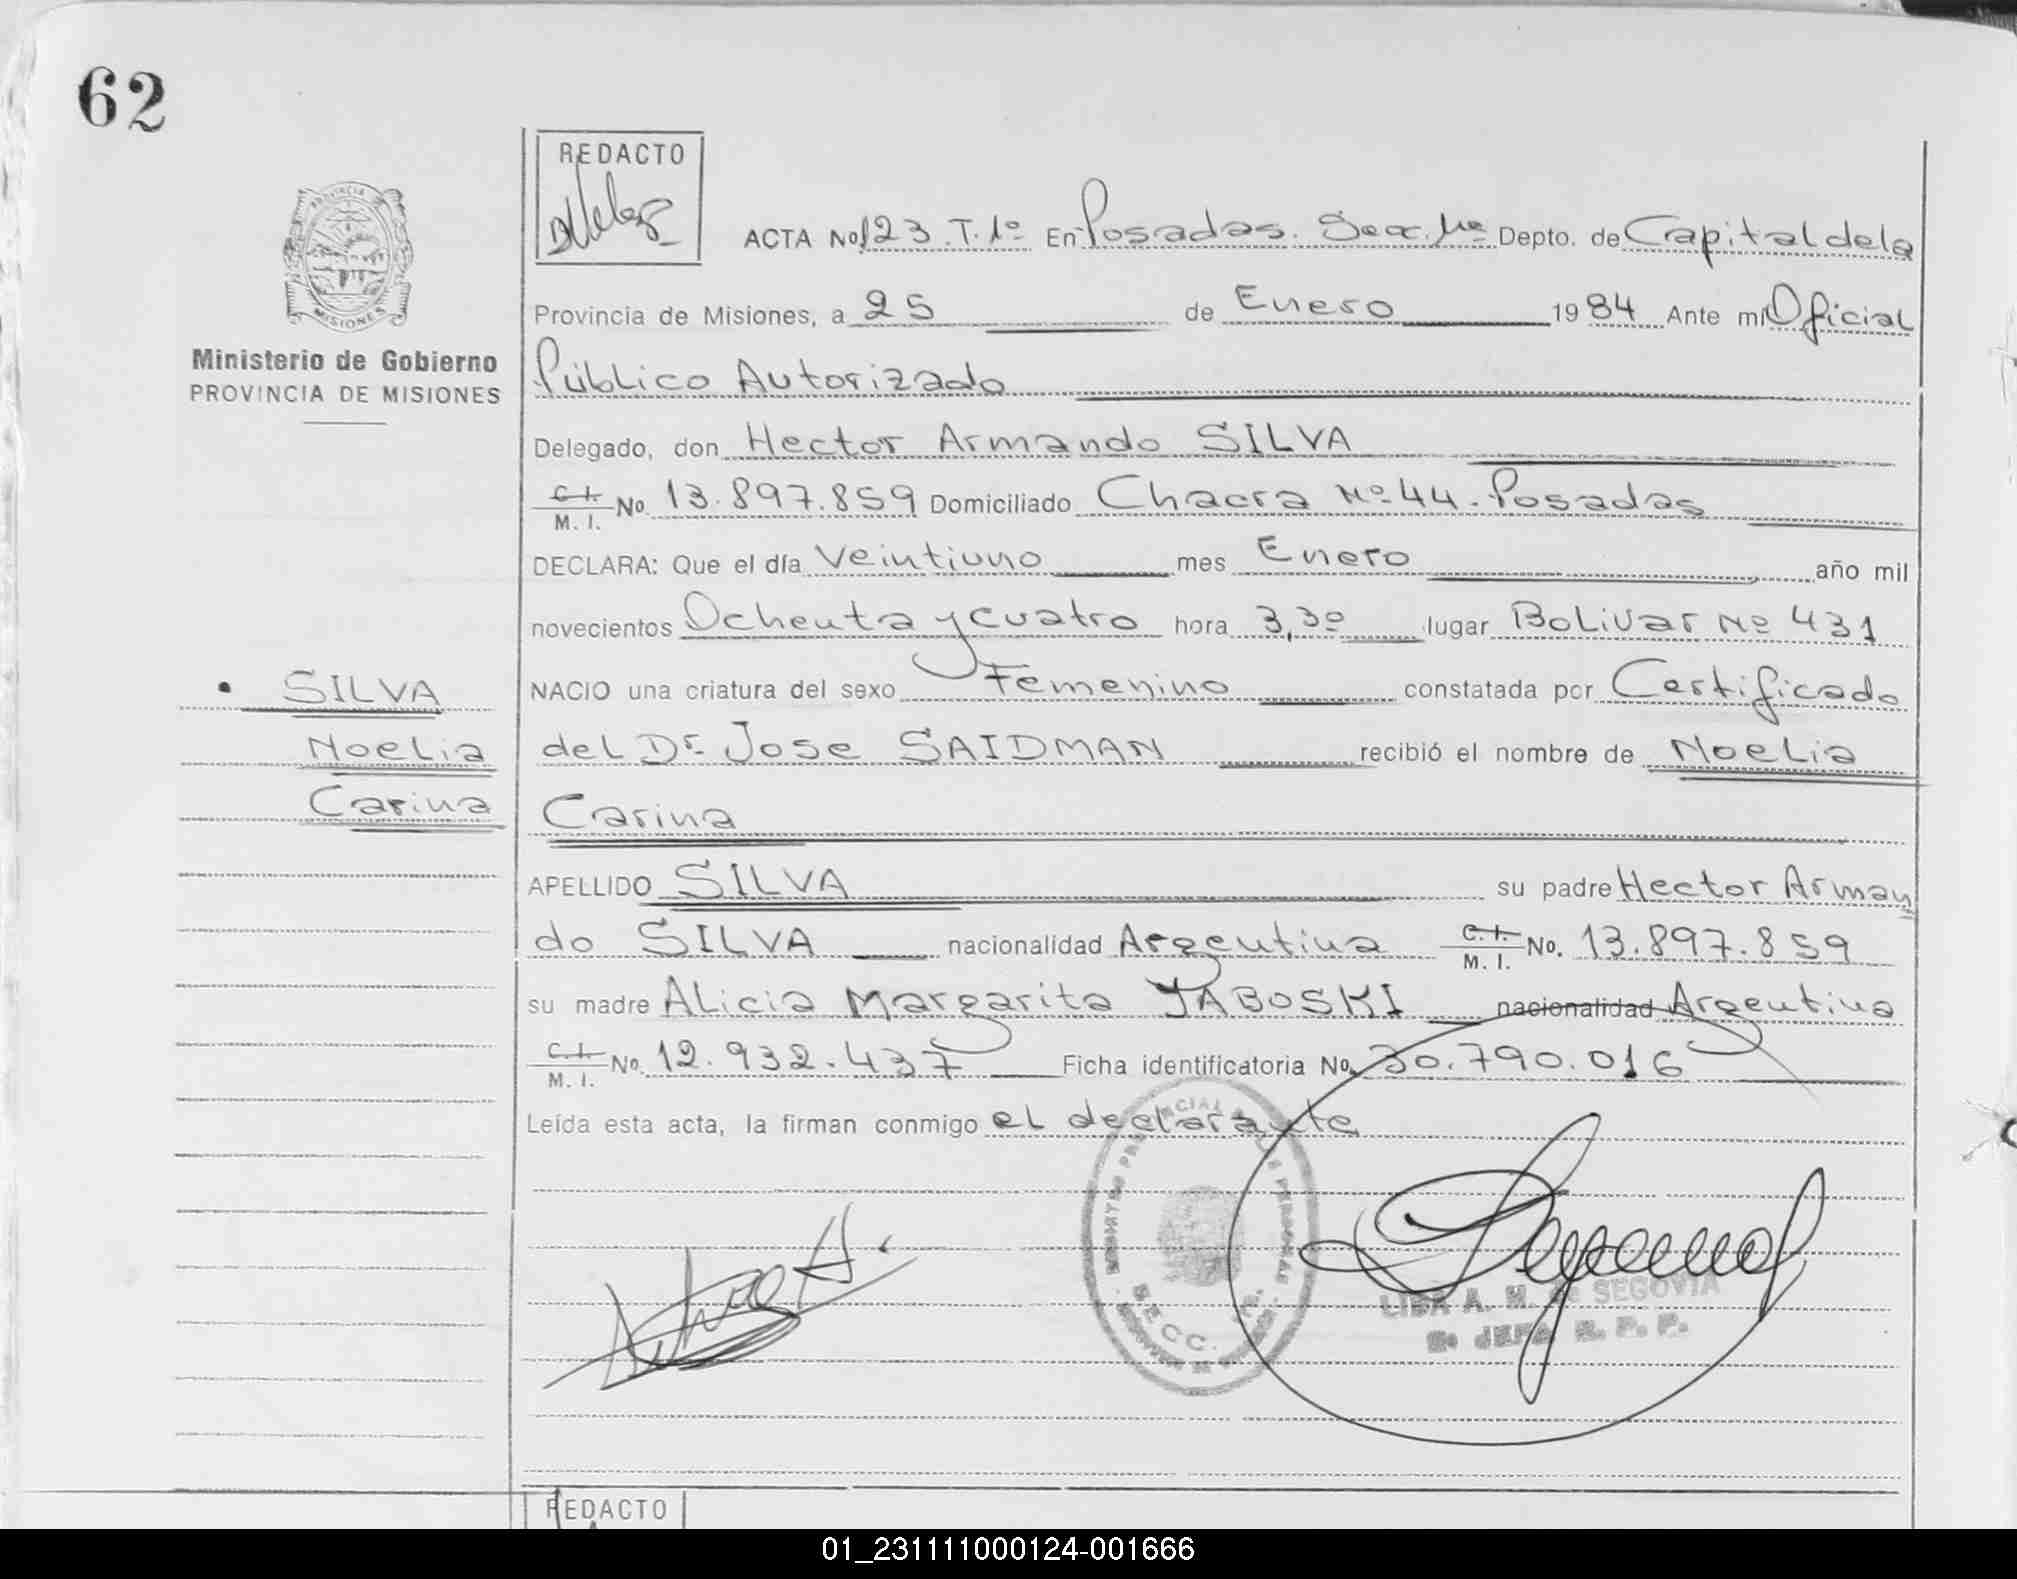 62
REDACTO
PROVINCIA
MISIONES
Ministerio de Gobierno
PROVINCIA DE MISIONES
ACTA No 123 T. 1º En Posadas. Secc. 1ª Depto. de Capital de la
Provincia de Misiones, a 25 de Enero 1984 Ante mi Oficial
Público Autorizado
Delegado, don Hector Armando SILVA
C. I. / M. I. No. 13.897.859 Domiciliado Chacra Nº 44 - Posadas
DECLARA: Que el día Veintiuno mes Enero año mil
novecientos Ochenta y cuatro hora 3,30 lugar Bolivar Nº 431
NACIO una criatura del sexo Femenino constatada por Certificado
del Dr. Jose SAIDMAN recibió el nombre de Noelia
Carina
APELLIDO SILVA su padre Hector Arman
do SILVA nacionalidad Argentina C. I. / M. I. No. 13.897.859
su madre Alicia Margarita YABOSKI nacionalidad Argentina
C. I. / M. I. No. 12.932.437 Ficha identificatoria No. 30.790.016
Leída esta acta, la firman conmigo el declarante
SILVA
Noelia
Carina
LIBA A. M. de SEGOVIA
2º JEFA R. P. P.
REDACTO
01_231111000124-001666